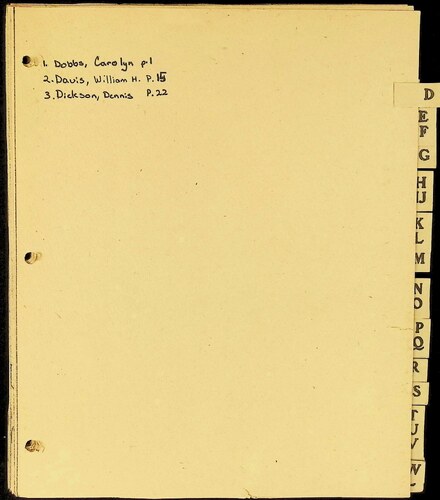 1. Dobbs, Carolyn p.1
2. Davis, William H. P.15
3. Dickson, Dennis P.22
D
E
F
G
H
IJ
K
L
M
N
O
P
Q
R
S
T
U
V
W